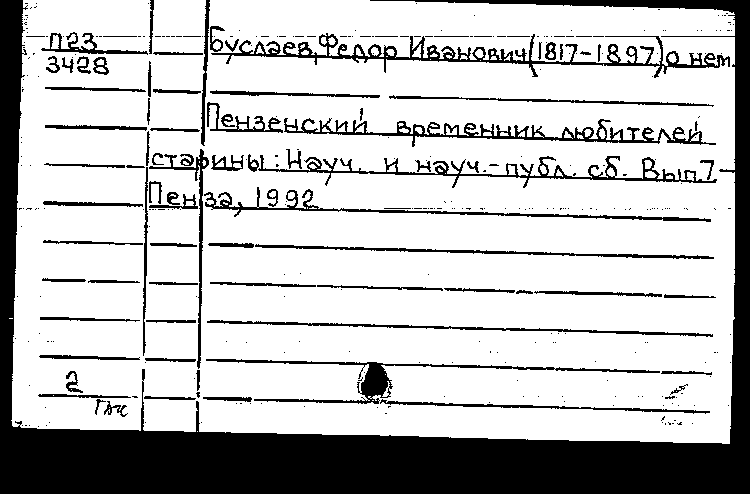 П23
3428
Буслаев, Федор Иванович (1817-1897), о нем.
Пензенский временник любителей
старины: Науч. и науч.-публ. сб. Вып. 7 -
Пенза, 1992
2